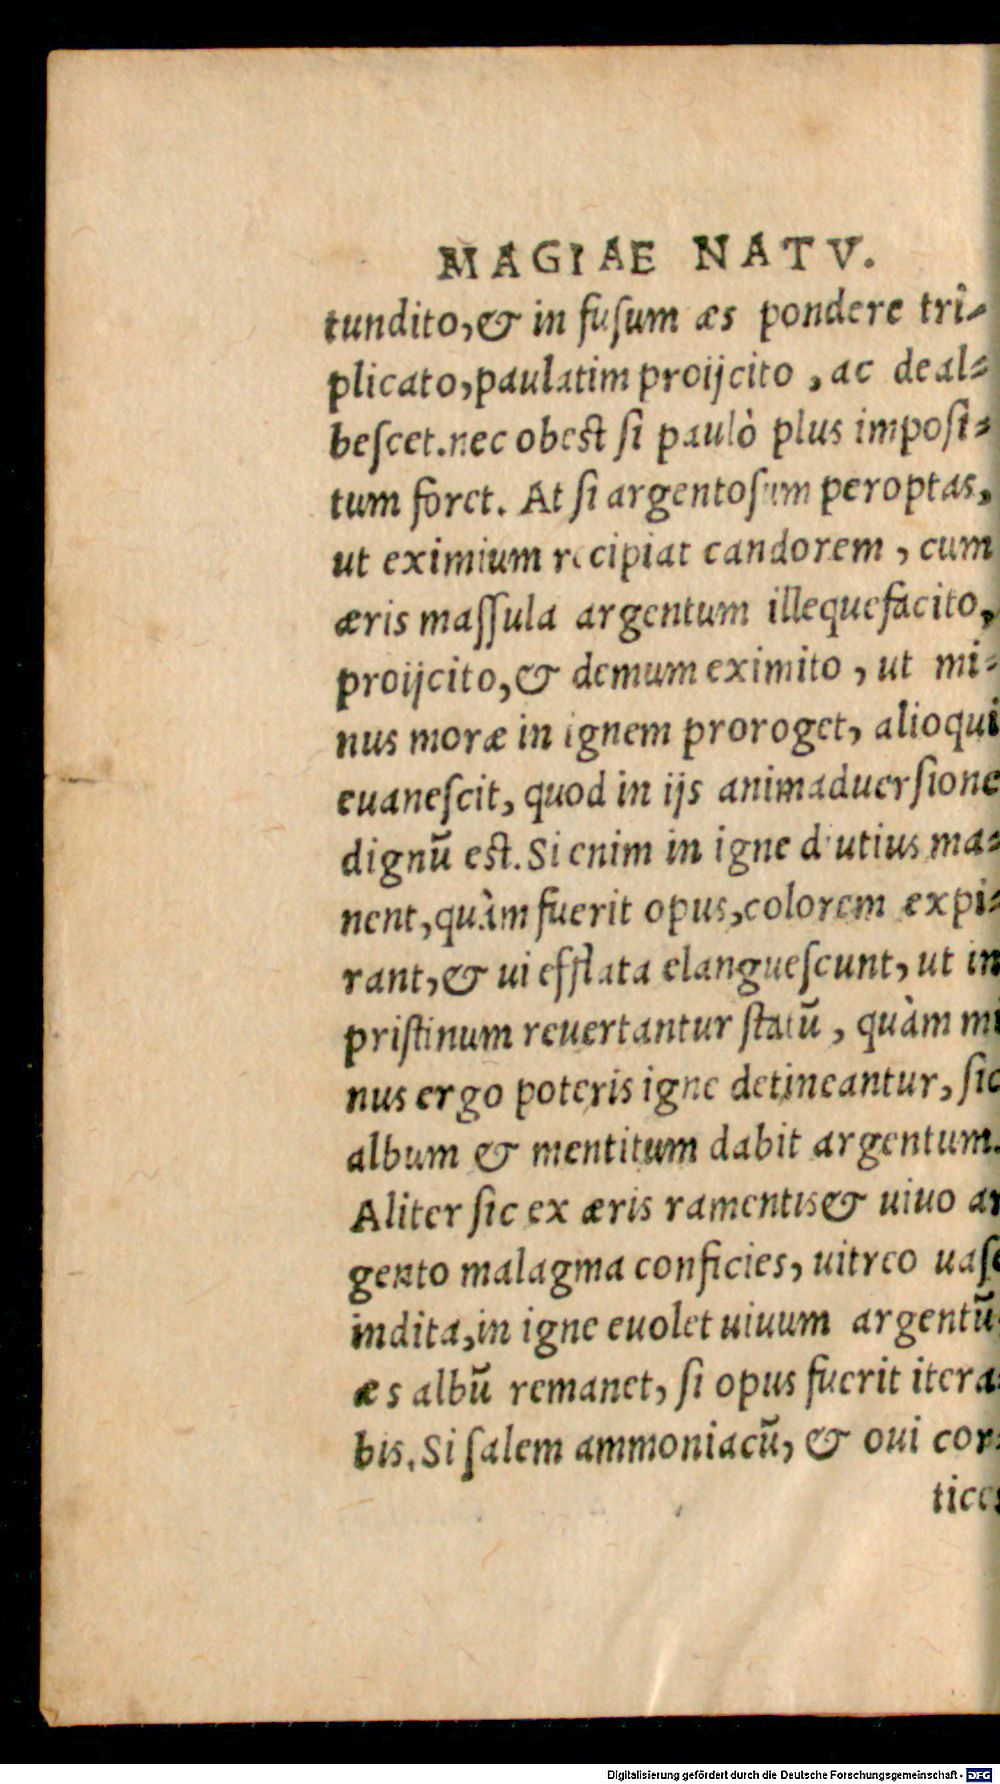 MAGIAE NATV.
tundito,& in fuſum æs pondere tri-
plicato,paulatim proijcito , ac deal-
beſcet.nec obest ſi paulò plus impoſi-
tum foret. At ſi argentoſum peroptas,
ut eximium recipiat candorem , cum
æris maſſula argentum illequefacito,
proijcito,& demum eximito , ut mi-
nus moræ in ignem proroget, alioqui
euaneſcit, quod in ijs animaduerſione
dignū est.Si enim in igne diutius ma-
nent,quàm fuerit opus,colorem expi-
rant,& ui efflata elangueſcunt, ut in
priſtinum reuertantur ſtatū , quàm mi
nus ergo poteris igne detineantur, ſic
album & mentitum dabit argentum.
Aliter ſic ex æris ramentis& uiuo ar
gento malagma conficies, uitreo uaſe
indita,in igne euolet uiuum argentū
æs albū remanet, ſi opus fuerit itera-
bis.Si ſalem ammoniacū, & oui cor-
tices
Digitalisierung gefördert durch die Deutsche Forschungsgemeinschaft - DFG